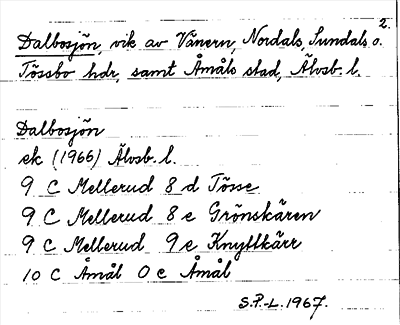 2.
Dalbosjön, vik av Vänern, Nordals, Sundals o.
Tössbo hdr, samt Åmåls stad, Älvsb. l.
Dalbosjön
ek (1966) Älvsb. l.
9 C Mellerud 8 d Tösse
9 C Mellerud 8 e Grönskären
9 C Mellerud 9 e Knyttkärr
10 C Åmål 0 e Åmål
S.P.-L. 1967.